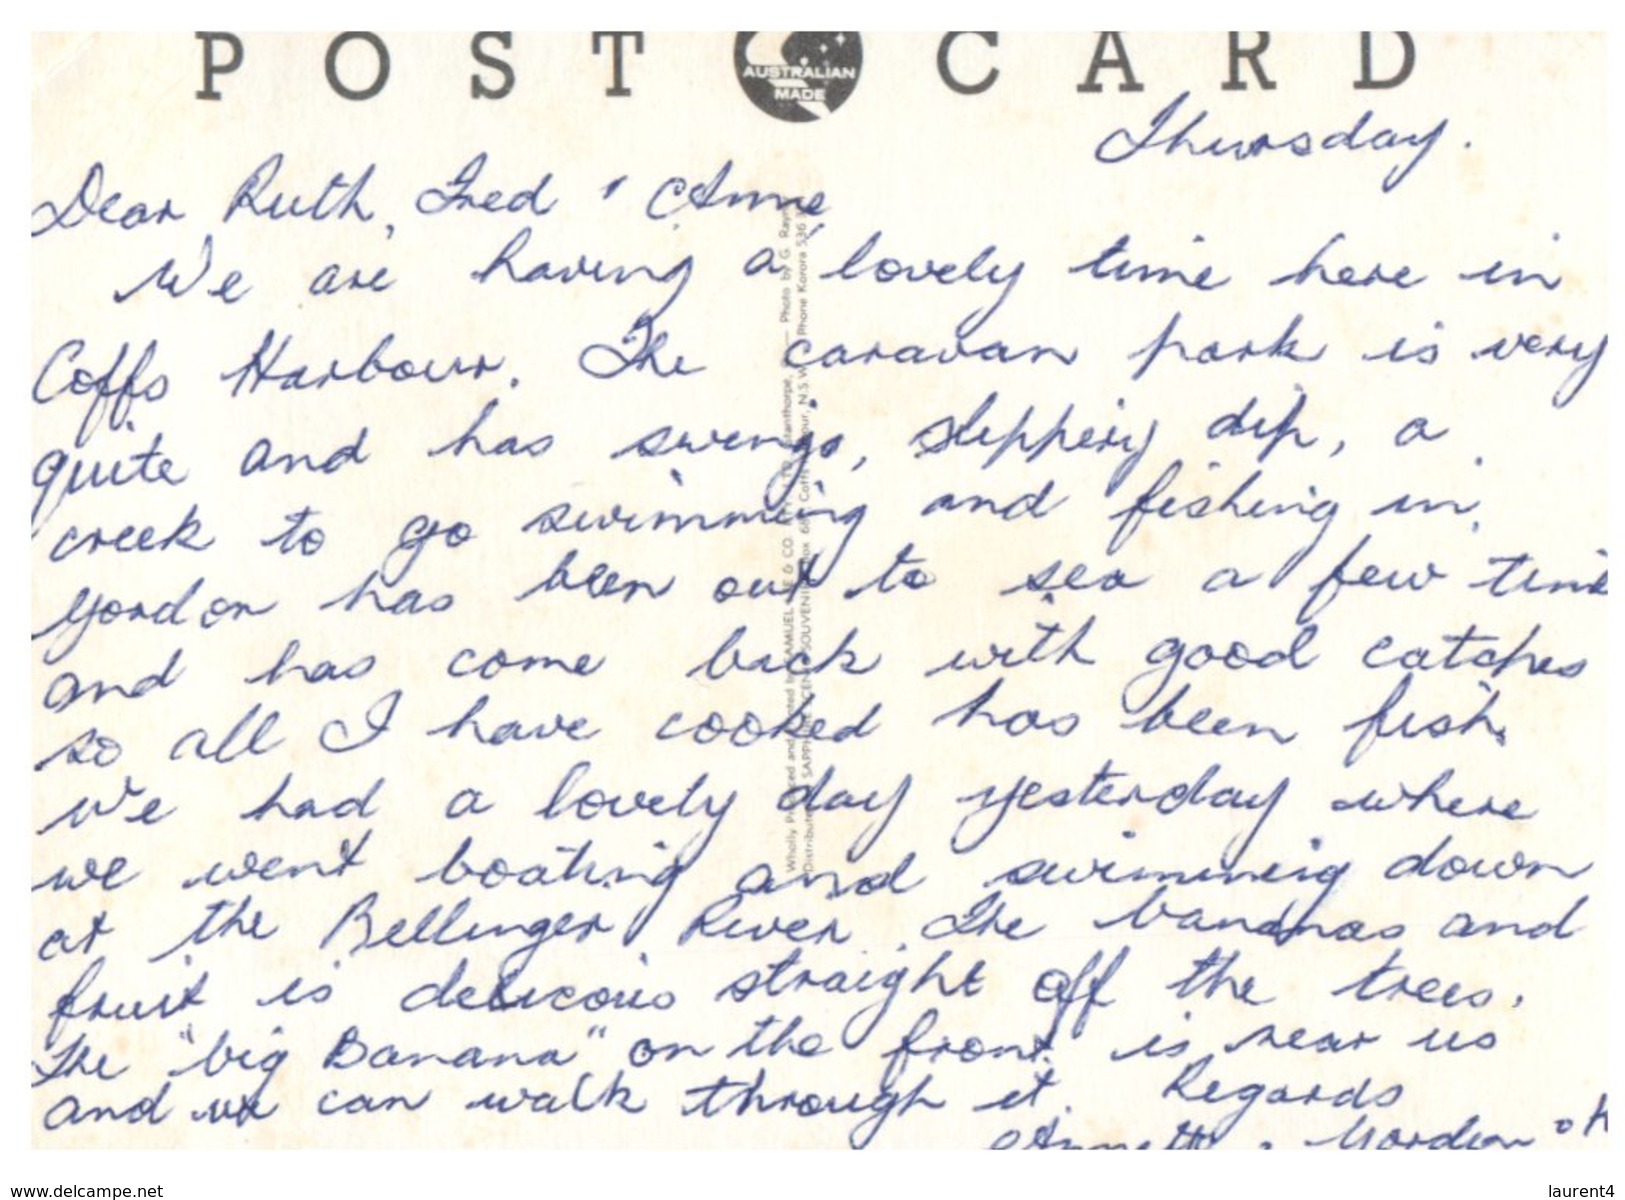 POST CARD
AUSTRALIAN
MADE
Thursday.
Dear Ruth, Fred & Anne
We are having a lovely time here in
Coffs Harbour. The caravan park is very
quite and has swings, slippery dip, a
creek to go swimming and fishing in.
Gordon has been out to sea a few
and has come back with good catches
so all I have cooked has been fish.
We had a lovely day yesterday where
we went boating and swimming down
at the Bellinger River. The bananas and
fruit is delicous straight off the trees.
The "big Banana" on the front is near us
and we can walk through it. Regards
Gordon
Photo by G.
Phone Korora 536
www.delcampe.net
laurent4